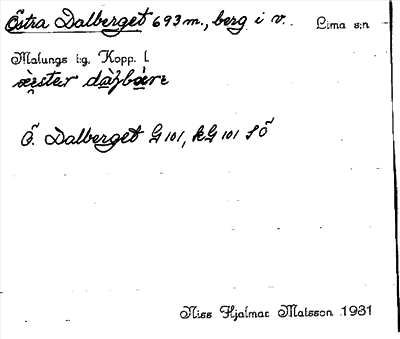 Östra Dalberget 693 m., berg i v. Lima s:n
Malungs t:g. Kopp. l.
Ö. Dalberget G 101, kG 101 SÖ
Niss Hjalmar Matsson 1931